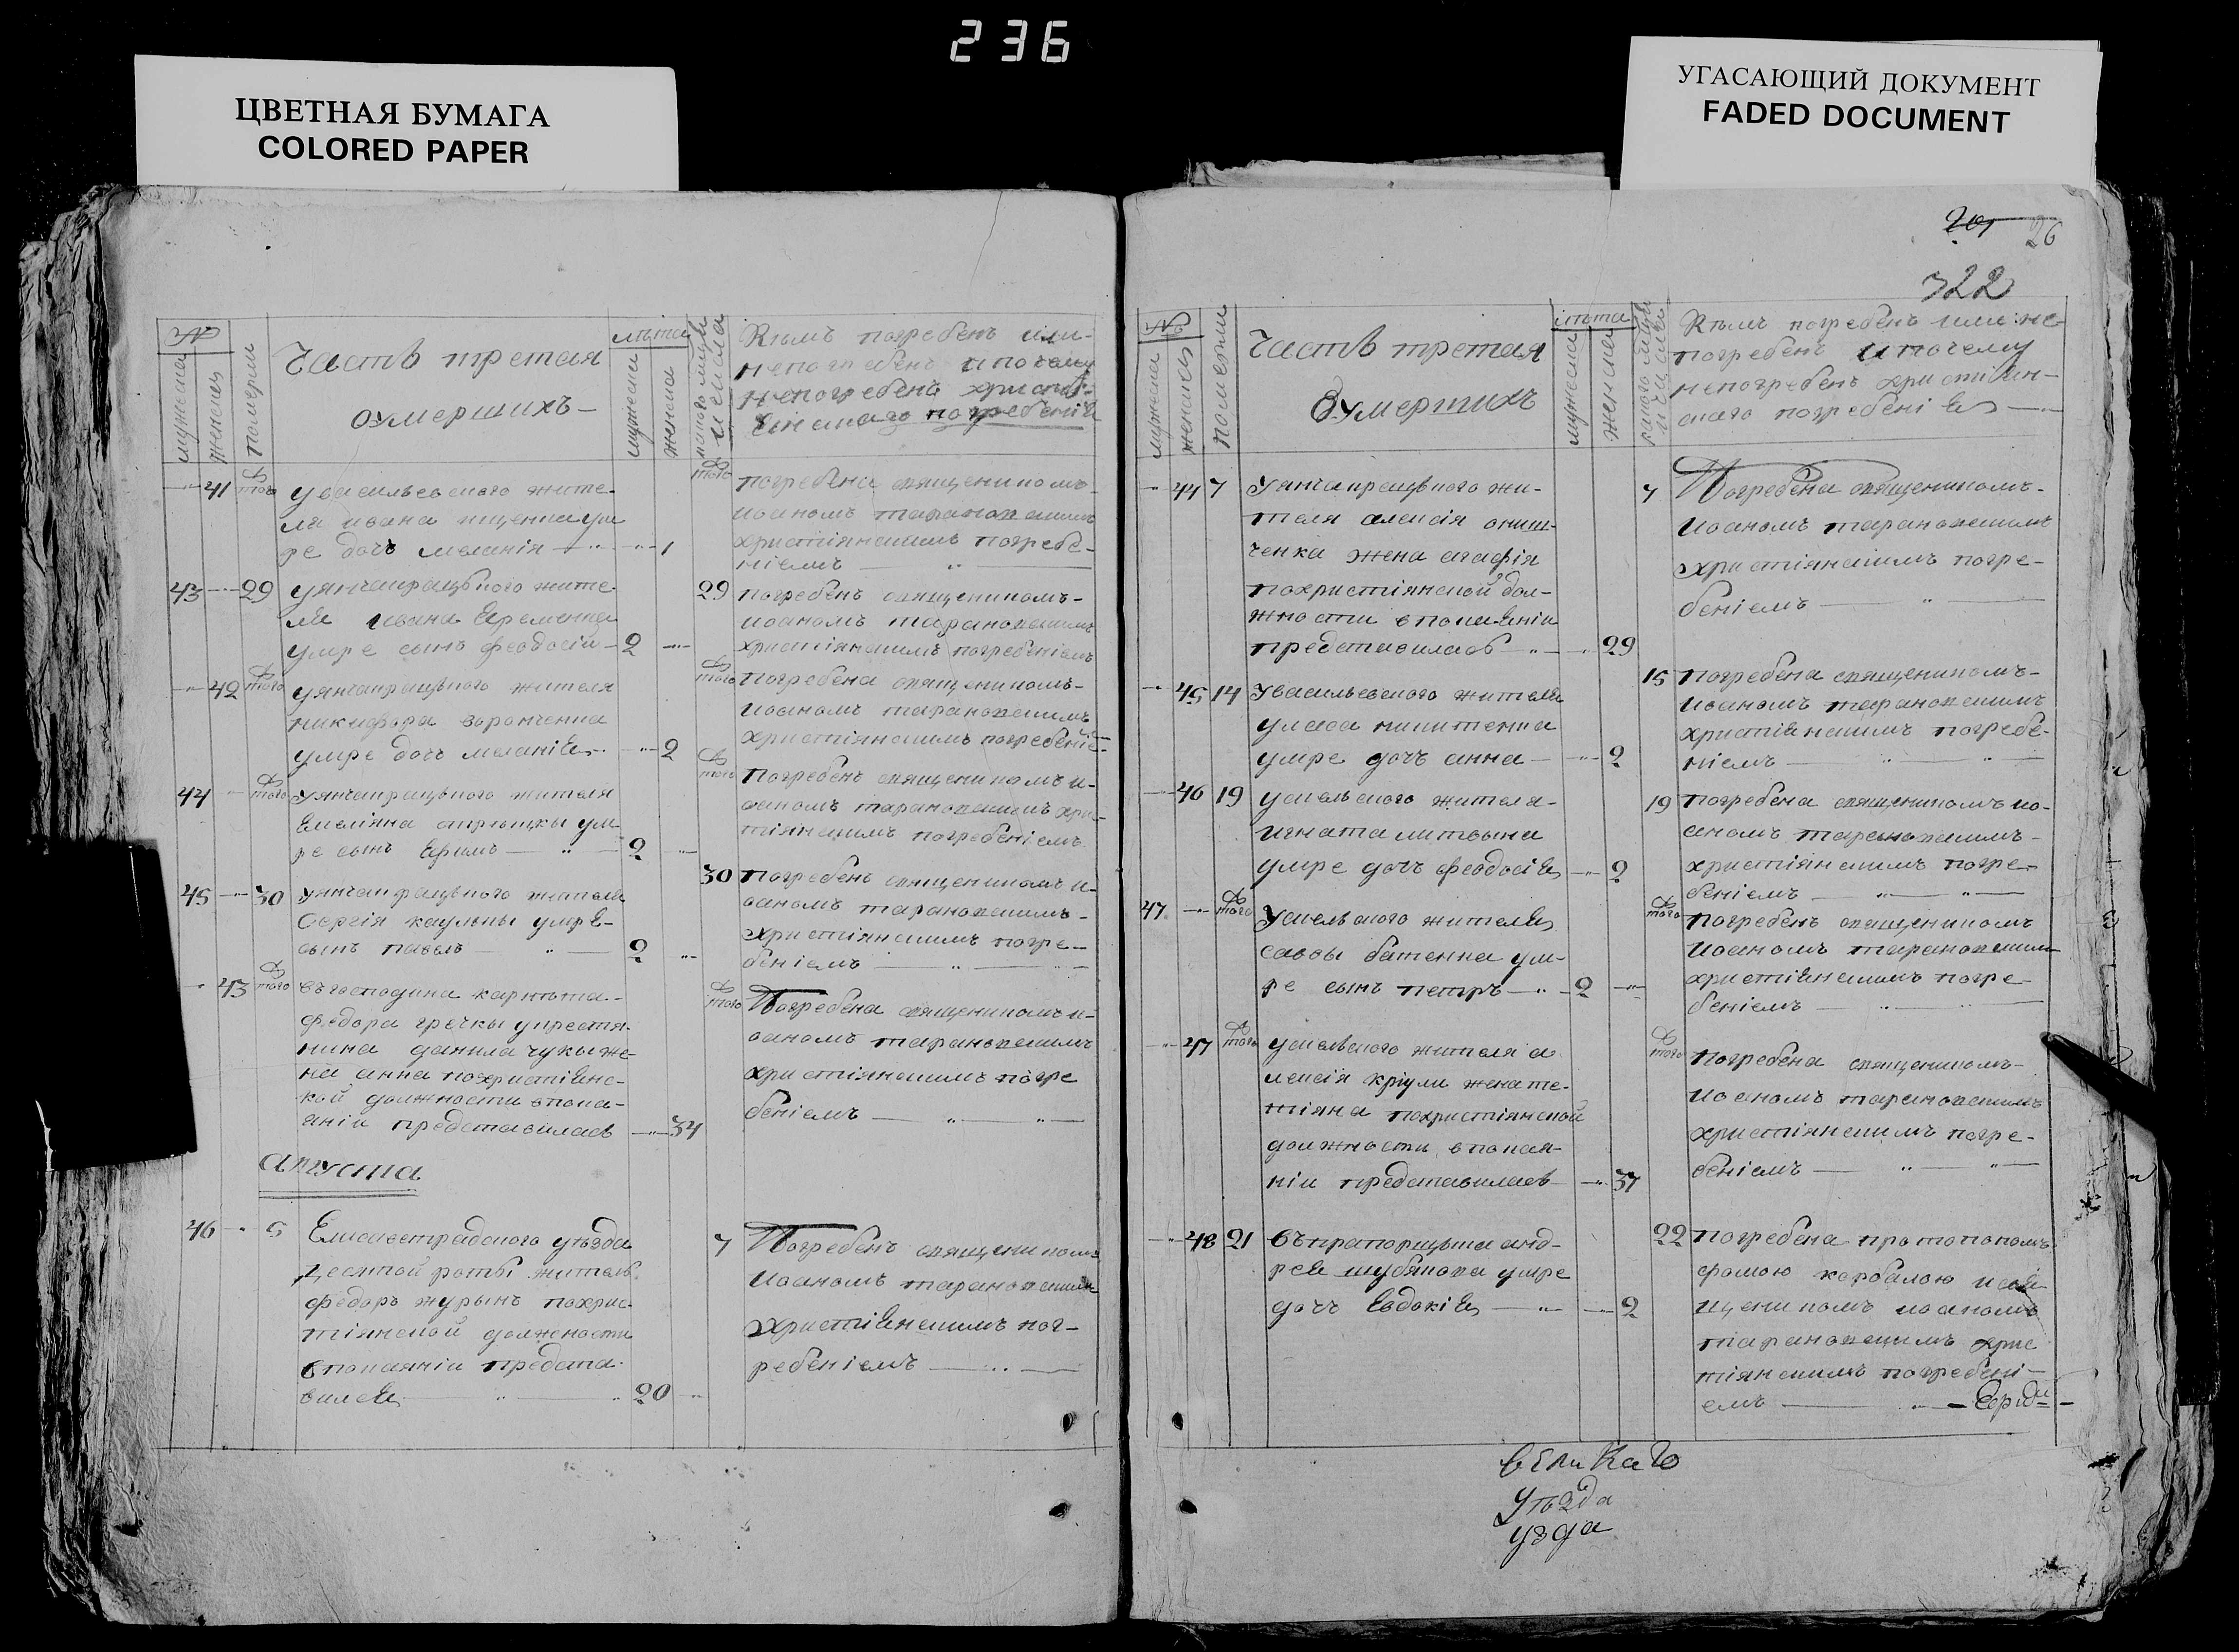 236
ЦВЕТНАЯ БУМАГА
COLORED PAPER
УГАСАЮЩИЙ ДОКУМЕНТ
FADED DOCUMENT
№
мужеска
женска
померли
Часть третая
оумершихъ
лѣта
мужеска
женска
Кѣмъ погребенъ или
непогребенъ и почему
непогребенъ христи-
погребенія
41 того
увасилевского жите-
ля ивана ищенка ум
ре дочъ меланія 1
того
погребена священикомъ
иоаномъ тарановскимъ
христіянскимъ погребе-
ніемъ
43 29 уянчакрацкого жите-
ля ивана Еременка
умре сынъ феодосій 2
29 погребенъ священикомъ
иоаномъ тарановскимъ
христіянскимъ погребеніемъ
42 того уянчакрацкого жителя
никифора воронченка
умре дочъ меланія 2
того погребена священикомъ
иоаномъ тарановскимъ
христіянскимъ погребеніе
44 того уянчакрацкого жителя
Емеліяна ум
ре сынъ Ефимъ 2
того погребенъ священикомъ и-
оаномъ тарановскимъ хри-
тіянскимъ погребеніемъ
45 30 уянчакрацкого жителя
Сергія каулны умре
сынъ павелъ 2
30 погребенъ священикомъ и-
оаномъ тарановскимъ
христіянскимъ погре-
беніемъ
43 того въ господина карнѣта
федора гречки укрестя-
нина данила чукы же-
на анна похристіянс-
кой должности впока-
яніи представилась 34
того Погребена священикомъ и-
оаномъ тарановскимъ
христіянскимъ погре
беніемъ
августа
46 5 Елисаветрадского уѣзда
Десятой роты житель
федоръ журынъ похрис-
тіянской должности
впокаяніи предста-
вился 20
7 Погребенъ священикомъ
иоаномъ тарановскимъ
христіянскимъ пог-
ребеніемъ
26
322
№
мужеска
женска
померли
Часть третая
Оумершихъ
лѣта
мужеска
женска
Кѣмъ погребенъ или не
погребенъ и почему
непогребенъ христіян-
скаго погребенія
44 7 Уянчакрацкого жи-
теля алексія онищ-
ченка жена агафія
похристіянской дол-
жности впокаяніи
представилась 29
7 Погребена священикомъ
иоаномъ тарановскимъ
христіянскимъ погре-
беніемъ
45 14 Увасилевского жителя
уласа никитенка
умре дочъ анна 2
15 погребена священикомъ
иоаномъ тарановскимъ
христіянскимъ погребе-
ніемъ
46 19 усельского жителя
игната литвына
умре дочъ феодосія 2
19 погребена священикомъ ио-
аномъ тарановскимъ
христіянскимъ погре-
беніемъ
47 того Усельского жителя
саввы батенка ум-
ре сынъ петръ 2
того погребенъ священикомъ
иоаномъ тарановскимъ
христіянскимъ погре-
беніемъ
47 того усельского жителя а
лексія кріули жена те-
тіяна похристіянской
должности впокая-
ніи представилась 37
того погребена священикомъ
иоаномъ тарановскимъ
христіянскимъ погре-
беніемъ
48 21 въпрапорщыка анд-
рея шубянока умре
дочъ Евдокія 2
22 погребена протопопомъ
фомою корбалою и свя
щеникомъ иоаномъ
тарановскимъ хрис
тіянскимъ погребені-
емъ
великаго
уѣзда
узда